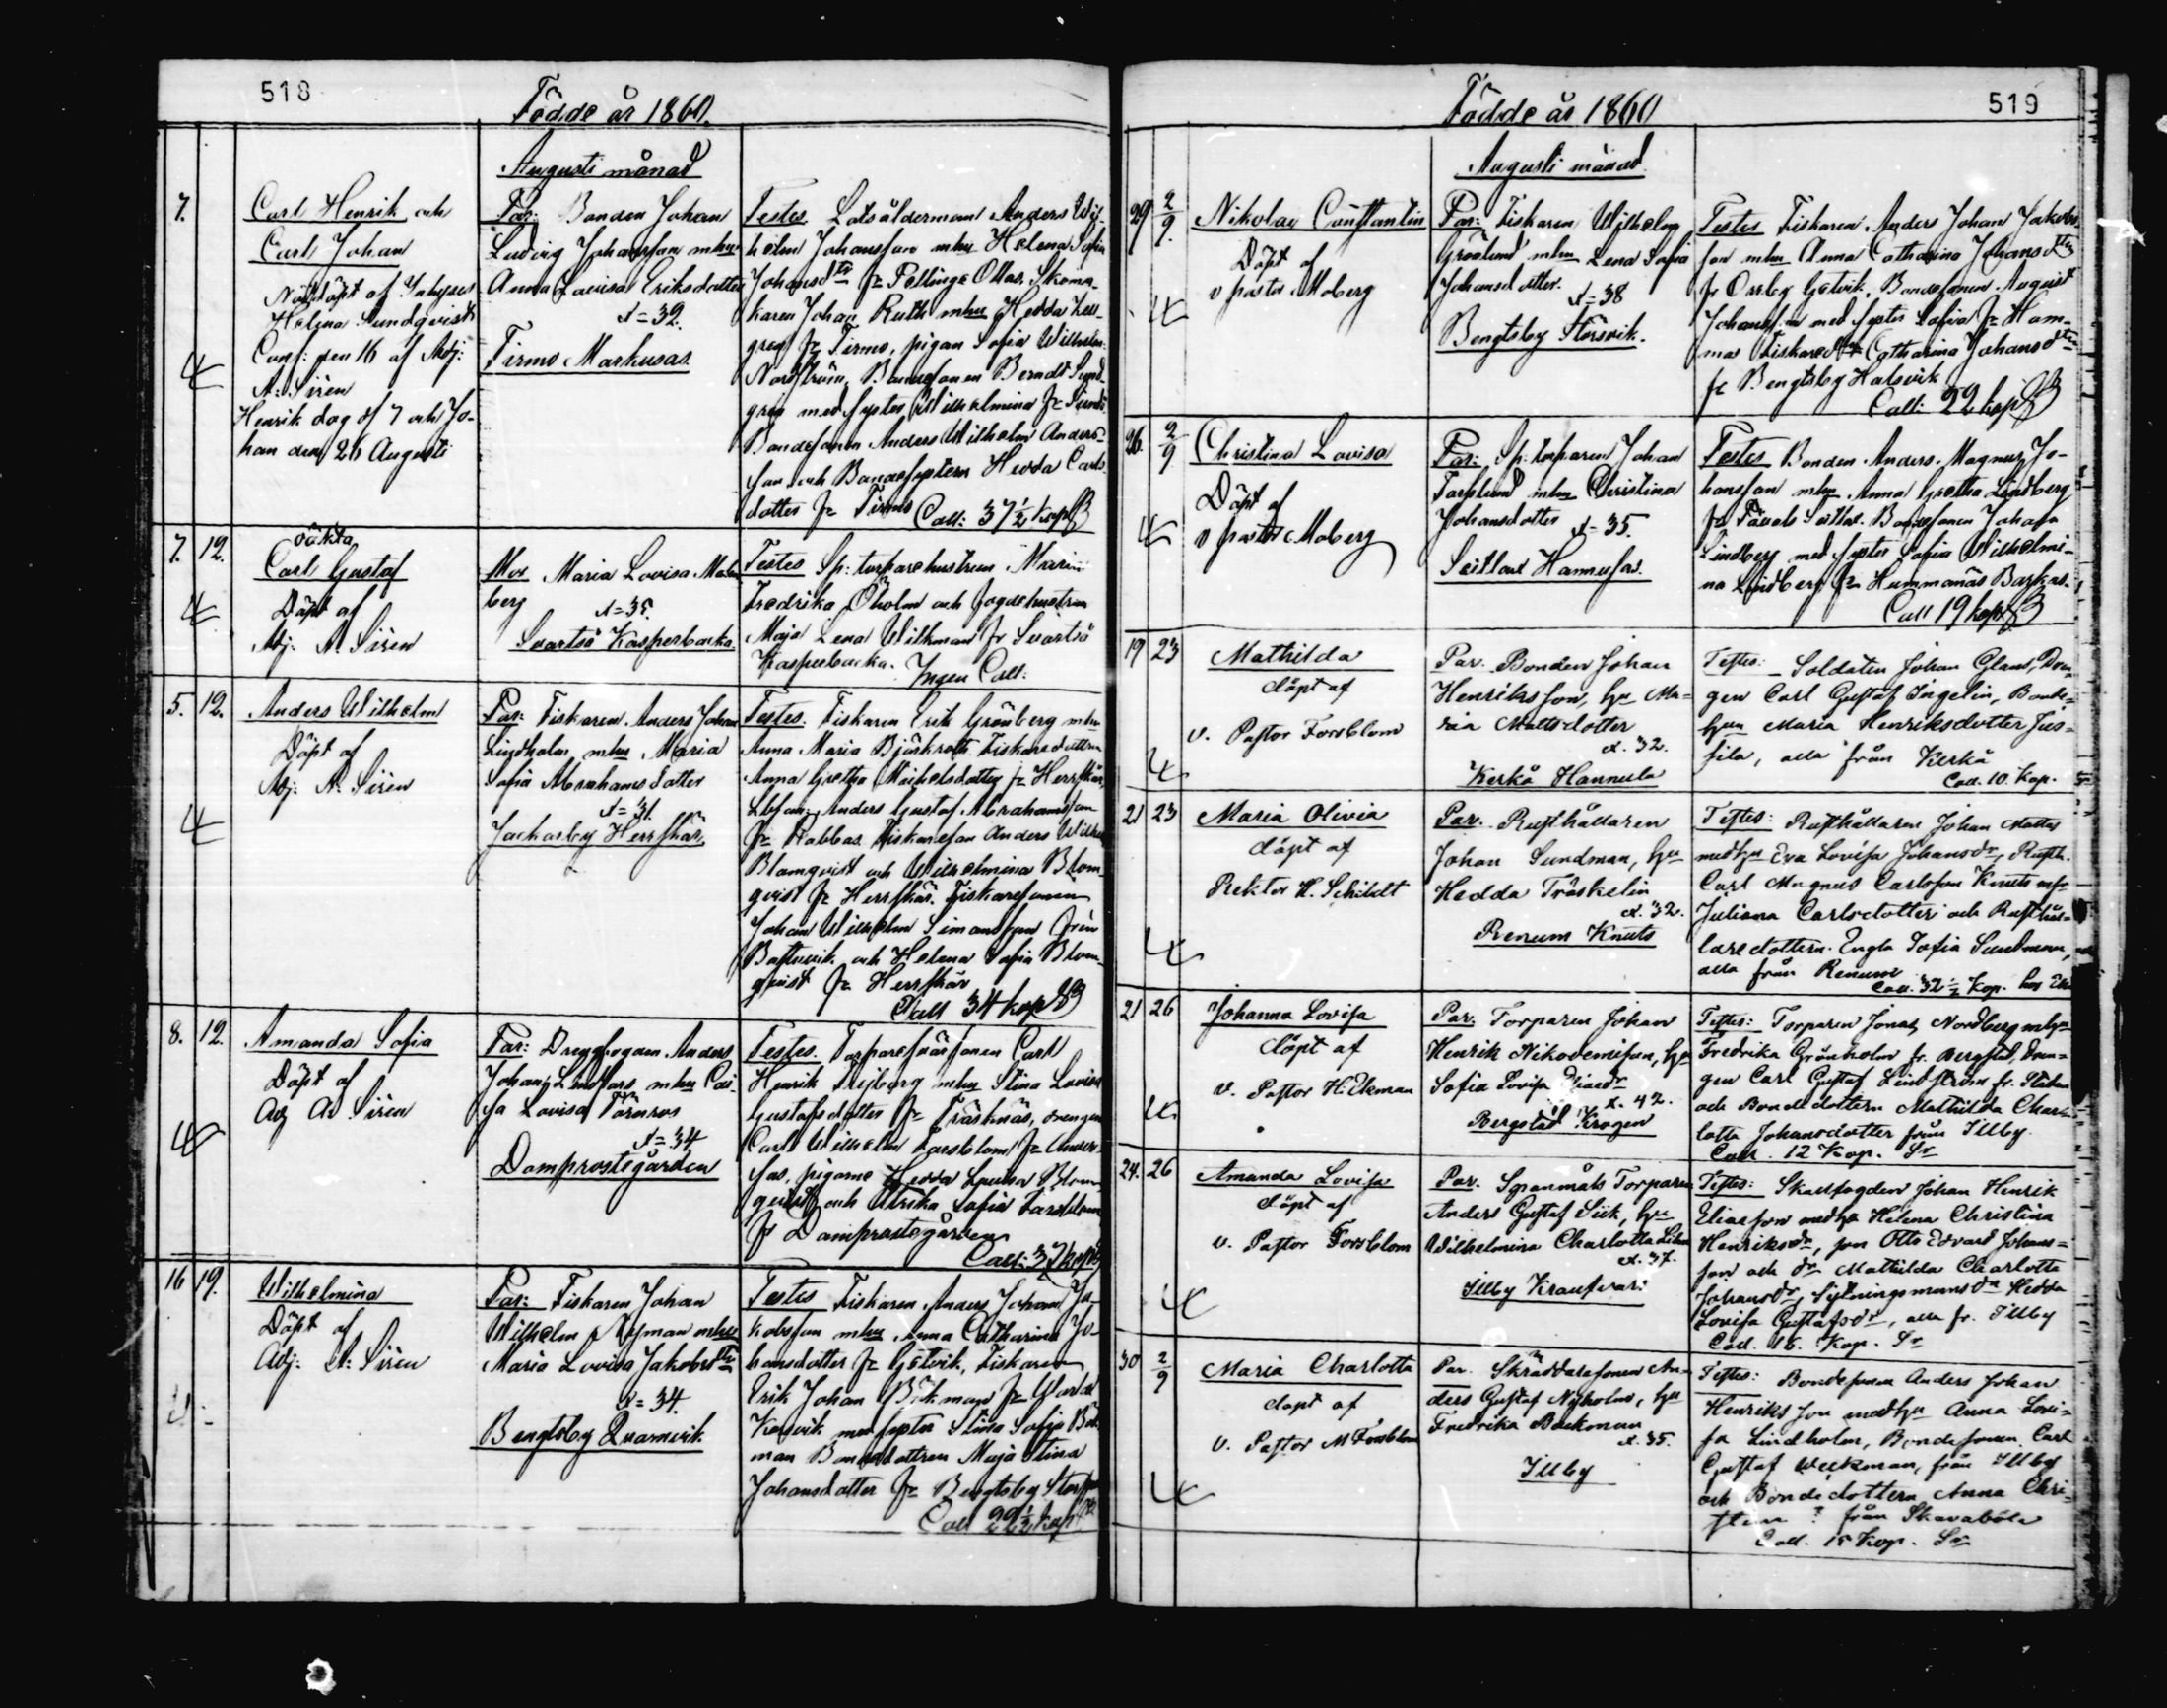 518
Födde år 1860.
Augusti månad
7.
Carl Henrik och
Carl Johan
Nöddöpt af
Helena Sundqvist
Conf: den 16 af Adj:
A: Sirén
Henrik dog d 7 och Jo-
han den 26 Augusti
Far: Bonden Johan
Ludvig Johansson mhu
Anna Lovisa Eriksdotter
32.
Firmo Markusas.
Testes Lotsåldermann Anders Wil-
helm Johansson mhu Helena Sofia
Johansdtr fr Pellinge Ollas. Skoma-
karen Johan Ruth mhu Hedda
gren fr Firmo, pigan Sofia Wilhelm:
Nordström, Bondesonen Berndt Sund-
gren med syster Wilhelmina fr
Bondesonen Anders Wilhelm Anders-
son och Bondesystern Hedda Carls-
dotter fr Firmo Coll: 37½ kop
7. 12.
oäkta
Carl Gustaf
Döpt af
Adj: A: Sirén
Mor Maria Lovisa
berg
35.
Svartsö Kasperbacka.
Testes Sp: torparehustrun Maria
Fredrika Öholm och fogdehustrun
Maja Lena Wilkman fr Svartsö
Kasperbacka. Ingen Coll:
5. 12.
Anders Wilhelm
Döpt af
Adj: A: Sirén
Far: Fiskaren Anders Johan
Lindholm, mhu Maria
Sofia Abrahamsdotter
31.
Jackarby Herrskär.
Testes. Fiskaren Erik Grönberg mhu
Anna Maria Björkroth, Fiskaredottren
Anna Gretha Michelsdotter fr Herrskär,
Anders Gustaf Abrahamsson
fr Rabbas. Fiskareson Anders Wilhelm
Blomqvist och Wilhelmina Blom-
qvist fr Herrskär. Fiskaresonen
Johan Wilhelm Simonsson från
och Helena Sofia Blom-
qvist fr Herrskär
Coll 34 kop
8. 12.
Amanda Sofia
Döpt af
Adj A: Sirén
Far: Drengfogden Anders
Johan Lindfors, mhu Cai-
sa Lovisa Törnroos
34
Domprostegården
Testes. Torparesvärsonen Carl
Henrik mhu Stina Lovisa
Gustafsdotter fr Träsknäs, drengen
Carl Wilhelm Forsblom fr Ander-
sas, pigorne Hedda Lovisa Blom-
qvist och Ulrika Sofia Forsblom
fr Domprostegården
Coll: 37 kop
16 19.
Wilhelmina
Döpt af
Adj: A: Sirén
Far: Fiskaren Johan
Wilhelm Nyman mhu
Maria Lovisa Jakobsdtr
34.
Bengtsby Qvarnvik.
Testes Fiskaren Anders Johan Ja-
kobsson mhu Anna Catharina Jo-
hansdotter fr Getvik, Fiskaren
Erik Johan Bökman fr
med syster Stina Sofia Bök-
man Bondedottren Maja Stina
Johansdotter fr Bengtsby
Coll 22½ kop
Födde år 1860
519
Augusti månad.
29 2/9.
Nikolai Constantin
Döpt af
v pastor Moberg
Far: Fiskaren Wilhelm
Grönlund mhu Lena Sofia
Johansdotter.
38
Bengtsby Storsvik.
Testes Fiskaren Anders Johan Jakobs-
son mhu Anna Catharina Johansdtr
fr Orrby Getvik, Bondesonen August
Johansson med syster Sofia fr Ham-
mar Fiskaredtr Catharina Johansdtr
fr Bengtsby Halsvik
Coll: 22 kop
26. 2/9
Christina Lovisa
Döpt af
v pastor Moberg
Far: Sp: torparen Johan
Forslund mhu Christina
Johansdotter 35.
Seitlax Hannusas.
Testes Bonden Anders Magnus Jo-
hansson mhu Anna Gretha Lindberg
fr Seitlax. Bondesonen Johan
Lindberg med syster Sofia Wilhelmi-
na Lindberg fr Hummanäs Barkas.
Coll 19 kop
19 23
Mathilda
döpt af
v. Pastor Forsblom
Far. Bonden Johan
Henriksson, hu Ma-
ria Mattsdotter
32.
Kerkö Hannula
Testes: Soldaten Johan Glans, Dren-
gen Carl Gustaf Ingelin, Bonde-
hun Maria Henriksdotter Jus-
sila, alla från Kerkö
Coll. 10. Kop.
21 23
Maria Olivia
döpt af
Rektor H. Schildt
Far. Rusthållaren
Johan Sundman, hu
Hedda Träskelin
32.
Renum Knuts
Testes: Rusthållaren Johan Mattes
medhu Eva Lovisa Johansdr, Rusth.
Carl Magnus Carlsson Knuts mhu
Juliana Carlsdotter och Rusthål-
laredottern Engla Sofia Sundman,
alla från Renum
Coll. 32½ Kop.
21 26
Johanna Lovisa
döpt af
v. Pastor H. Ekman
Far: Torparen Johan
Henrik Nikodemison, hu
Sofia Lovisa Eliaedr
42.
Bergstad Krogen
Testes: Torparen Jonas Nordberg mhu
Fredrika Grönholm fr. Bergstad, Dren-
gen Carl Gustaf Lindström fr.
och Bondedottern Mathilda Char-
lotta Johansdotter från Illby.
Coll. 12 Kop. Sr
24. 26
Amanda Lovisa
döpt af
v. Pastor Forsblom
Far. Spanmåls Torparen
Anders Gustaf Siik, hu
Wilhelmina Charlotta
37.
Illby Kraufvari
Testes: Skallfogden Johan Henrik
Eliaeson medhu Helena Christina
Henriksdr, son Otto Edvard Johans-
son och dr Mathilda Charlotta
Johansdr, Sytningsmansdr Hedda
Lovisa Gustafsdr, alla fr. Illby
Coll. 16. Kop. Sr
30 2/9
Maria Charlotta
döpt af
v. Pastor M Forsblom
Far. Skräddaresonen An-
ders Gustaf Nyholm, hu
Fredrika Backman
35.
Illby
Testes: Bondesonen Anders Johan
Henriksson medhu Anna Lovi-
sa Lindholm, Bondesonen Carl
Gustaf Weckman, från Illby
och Bondedottern Anna Chri-
stina ? från Skavaböle
Coll. 15 Kop. Sr